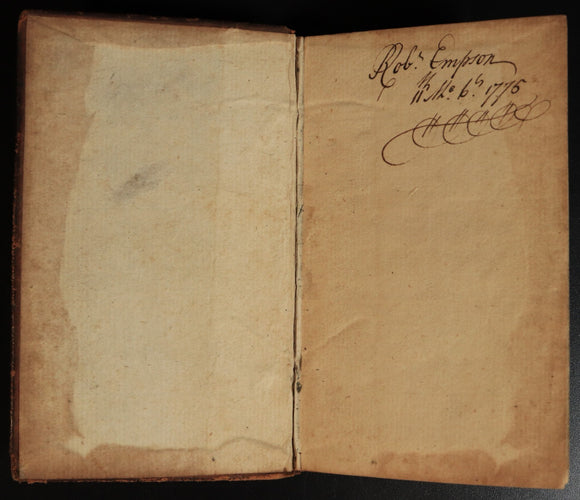 Robt. Empson
11th Mo. 6th. 1776